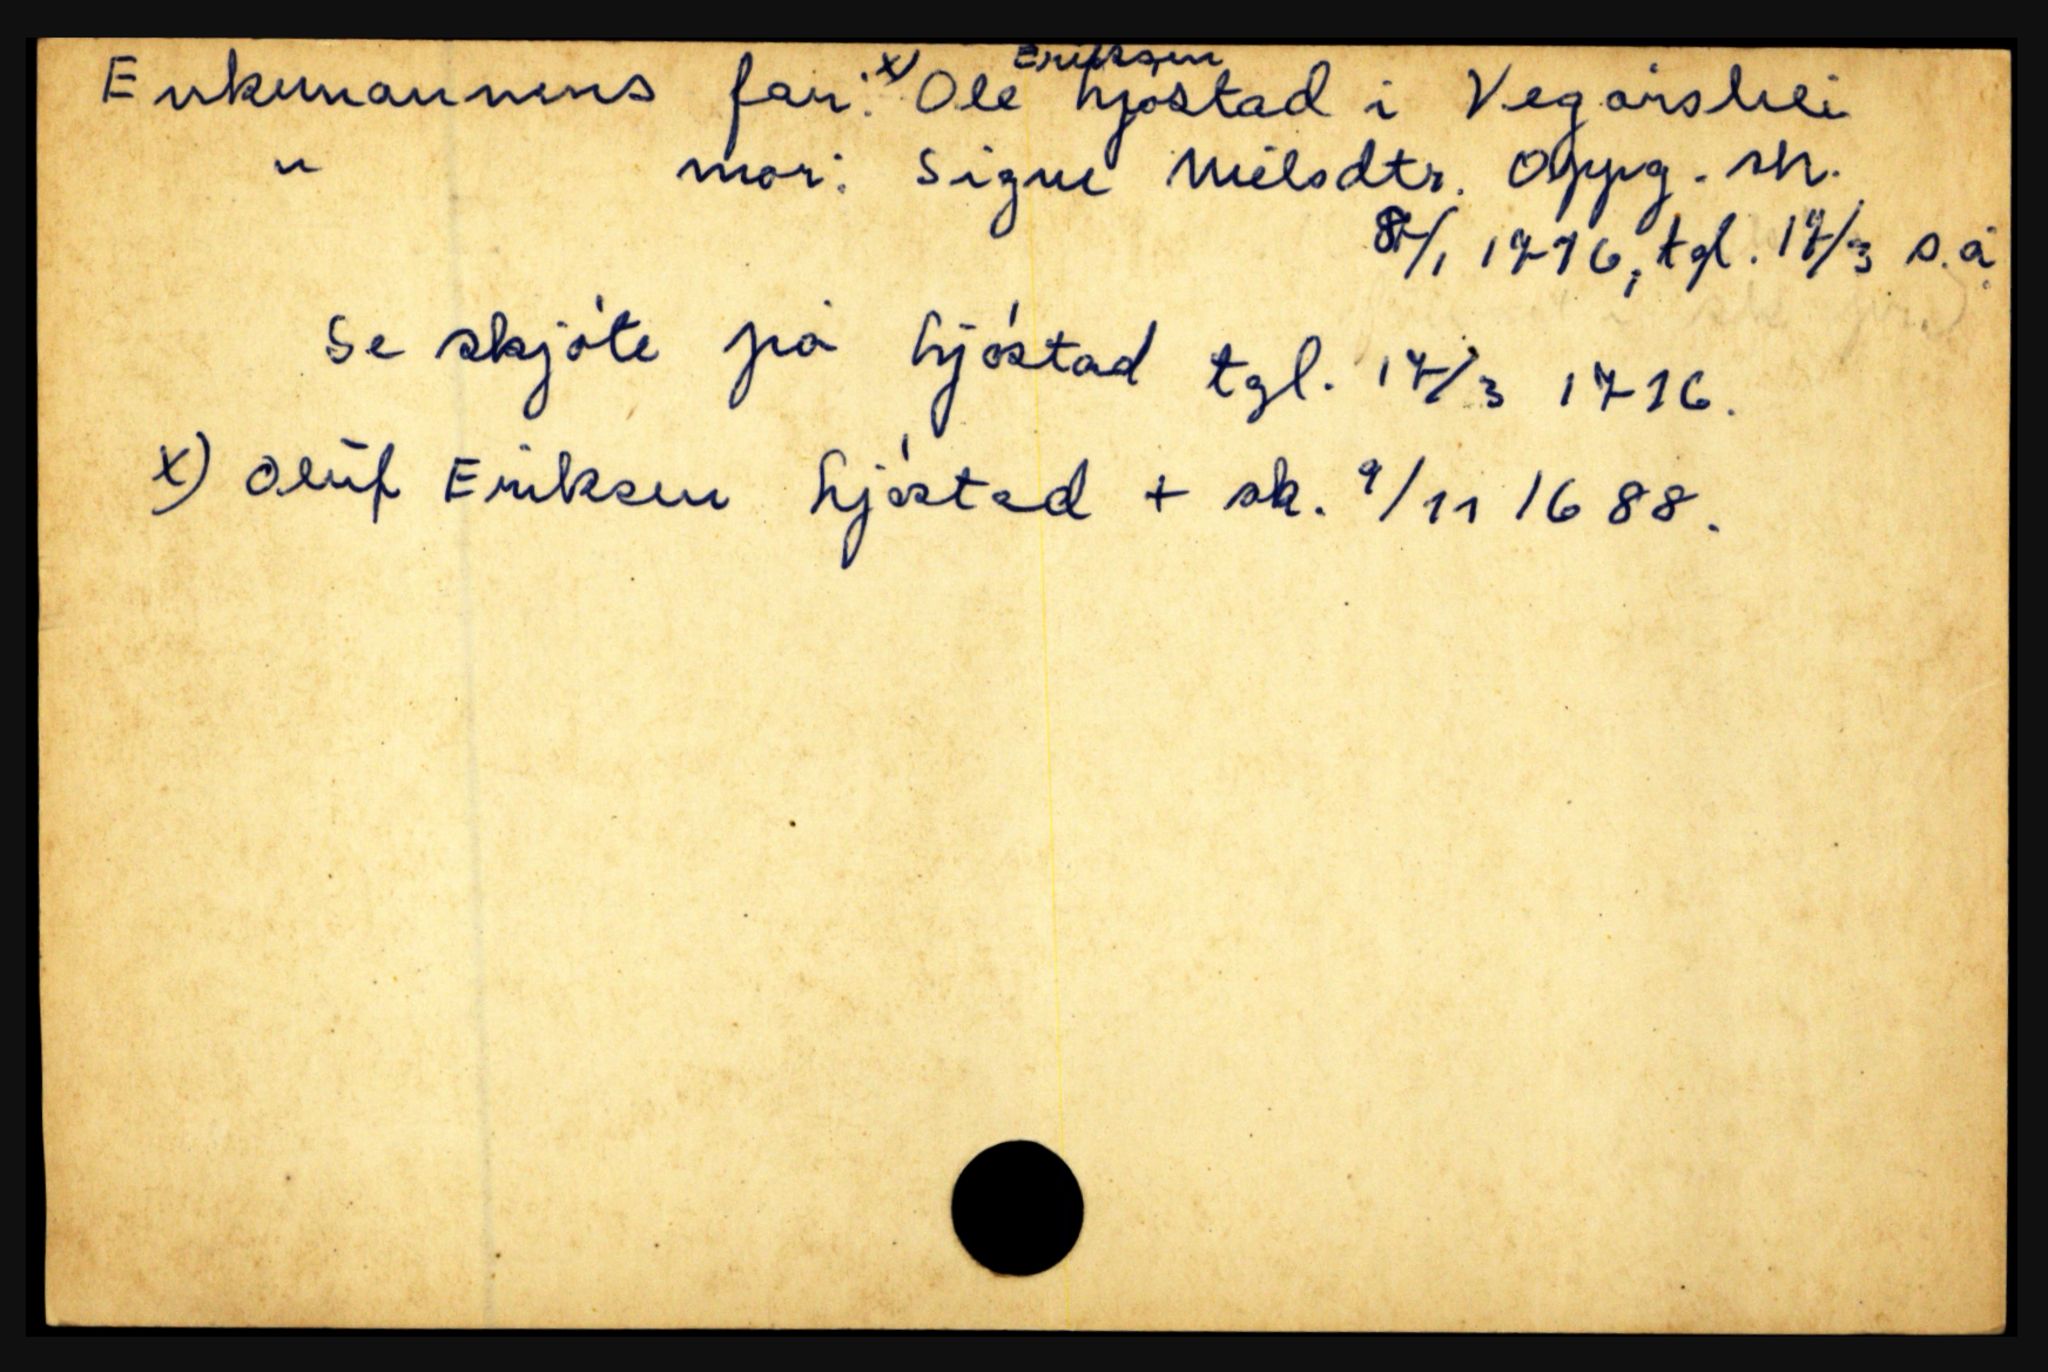 Enkemannens far: x) Ole Eriksen hjøstad i Vegårshei
" mor: Signe Nielsdtr. Oppg. sk.
8/1 1716, tgl. 17/3 s.å.
Se skjøte på hjøstad tgl. 17/3 1716.
x) Oluf Eriksen hjøstad + sk. 9/11 1688.